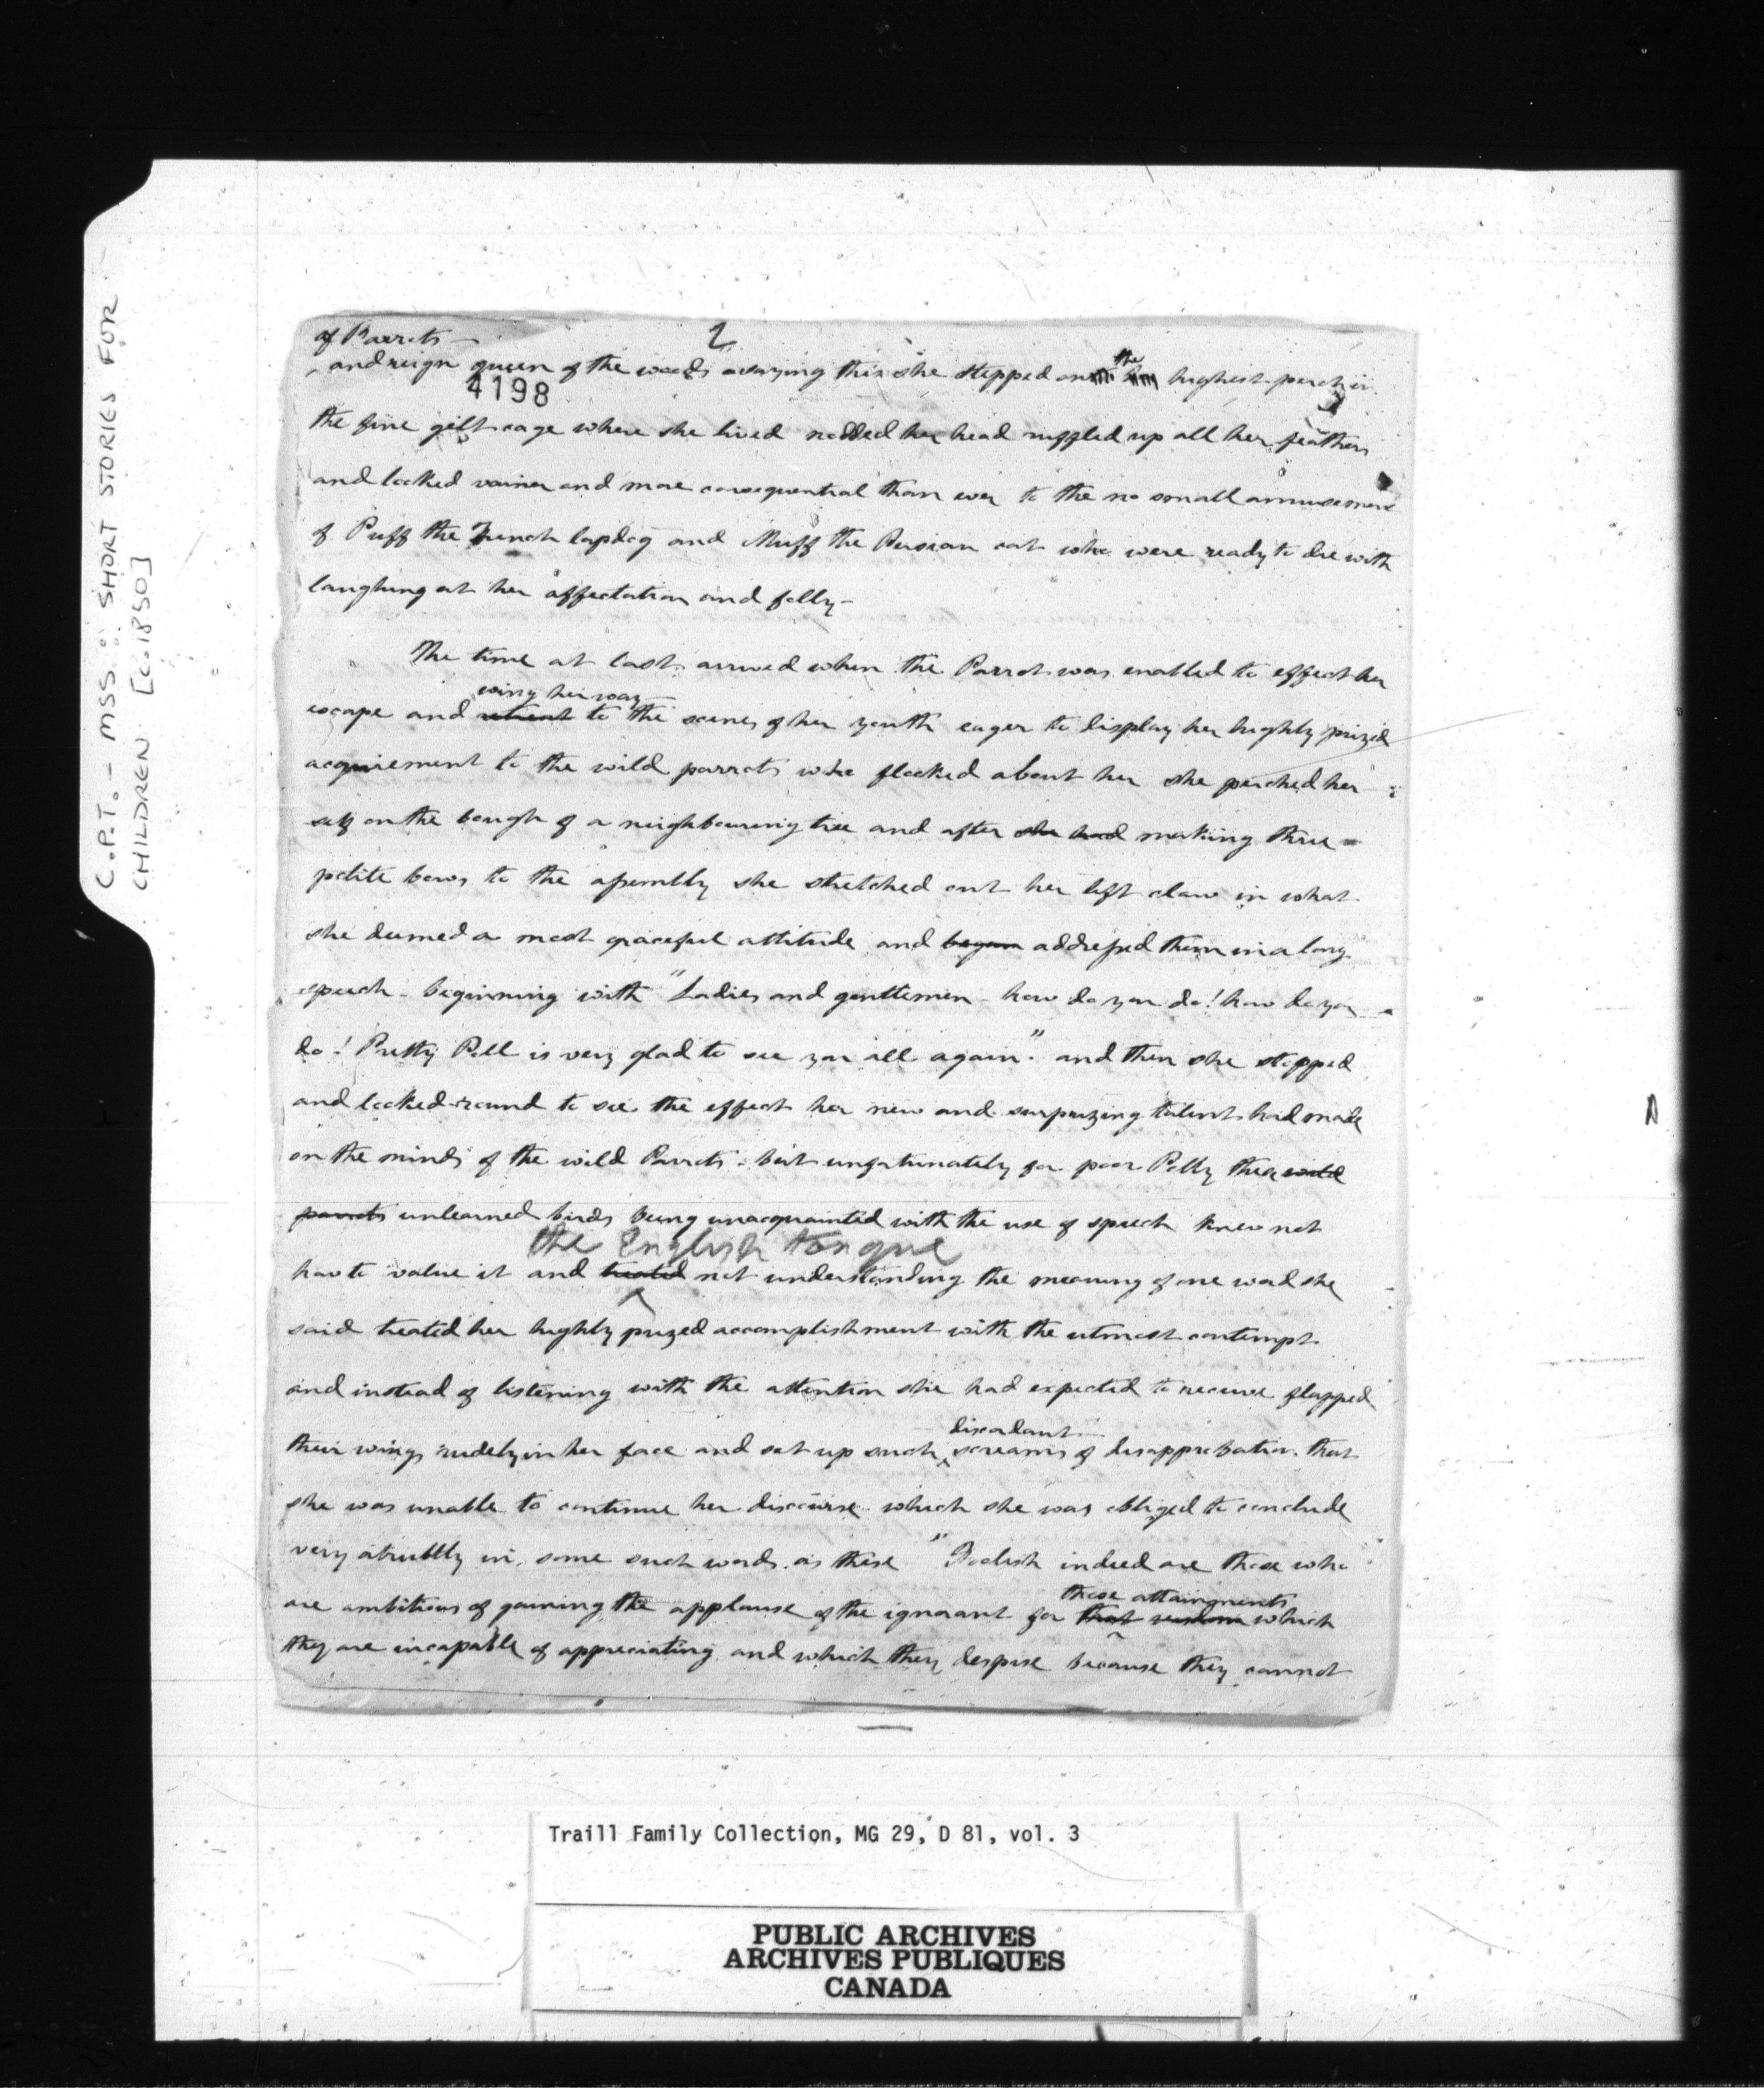 C.P.T. - MSS: SHORT STORIES FOR
CHILDREN [c.1850]
2
of Parrots —
and reign queen of the woods saying this she stepped on the highest perch in
4198
the fine gilt cage where she lived nodded her head ruffled up all her feathers
and looked vainer and more consequential than ever to the no small amusement
of Puff the French lapdog and Muff the Persian cat who were ready to die with
laughing at her affectation and folly —
The time at last arrived when the Parrot was enabled to effect her
wing her way
escape and retreat to the scenes of her youth eager to display her highly prized
acquirement to the wild parrots who flocked about her she perched her
self on the bough of a neighbouring tree and after she had making three
polite bows to the assembly she stretched out her left claw in what
she deemed a most graceful attitude and began addressed them in a long
speech - beginning with "Ladies and gentlemen - how do you do! how do you
do! Pretty Poll is very glad to see you all again." and then she stopped
and looked round to see the effect her new and surprizing talent had made
on the minds of the wild Parrots - but unfortunately for poor Polly these wild
parrots unlearned birds being unacquainted with the use of speech knew not
the English tongue
how to value it and treated not understanding the meaning of one word she
said treated her highly prized accomplishment with the utmost contempt
and instead of listening with the attention she had expected to receive flapped
discordant
their wings rudely in her face and set up such screams of disapprobation that
she was unable to continue her discourse which she was obliged to conclude
very abrubtly in some such words as these "Foolish indeed are those who
those attainments
are ambitious of gaining the applause of the ignorant for that wisdom which
they are incapable of appreciating and which they despise because they cannot
Traill Family Collection, MG 29, D 81, vol. 3
PUBLIC ARCHIVES
ARCHIVES PUBLIQUES
CANADA